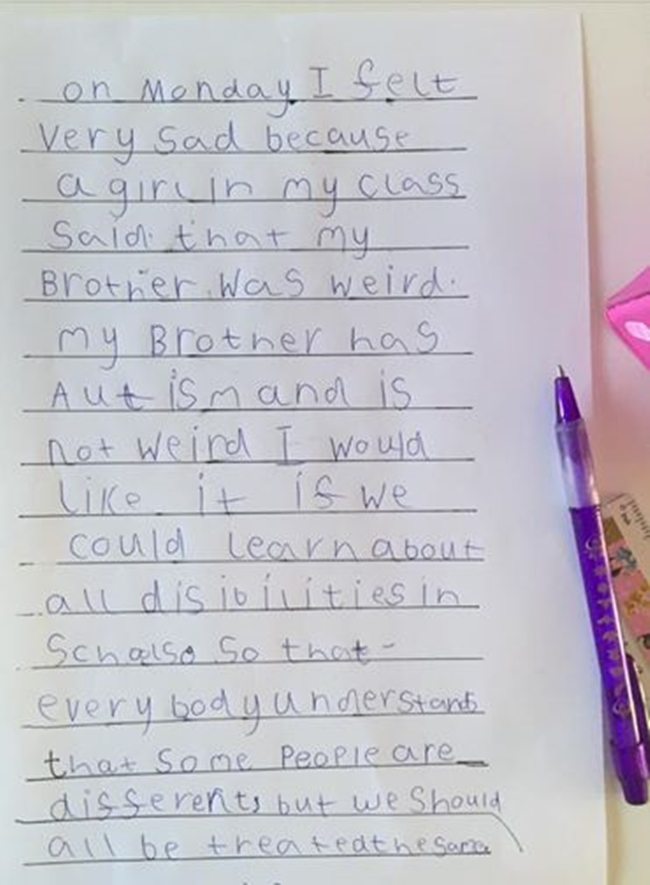 on Monday I felt
very sad because
a girl in my class
Said that my
Brother was weird.
my Brother has
Autism and is
not weird I would
like it if we
could learn about
all disibilities in
Schools so that
everybody understands
that some people are
different, but we should
all be treated the same